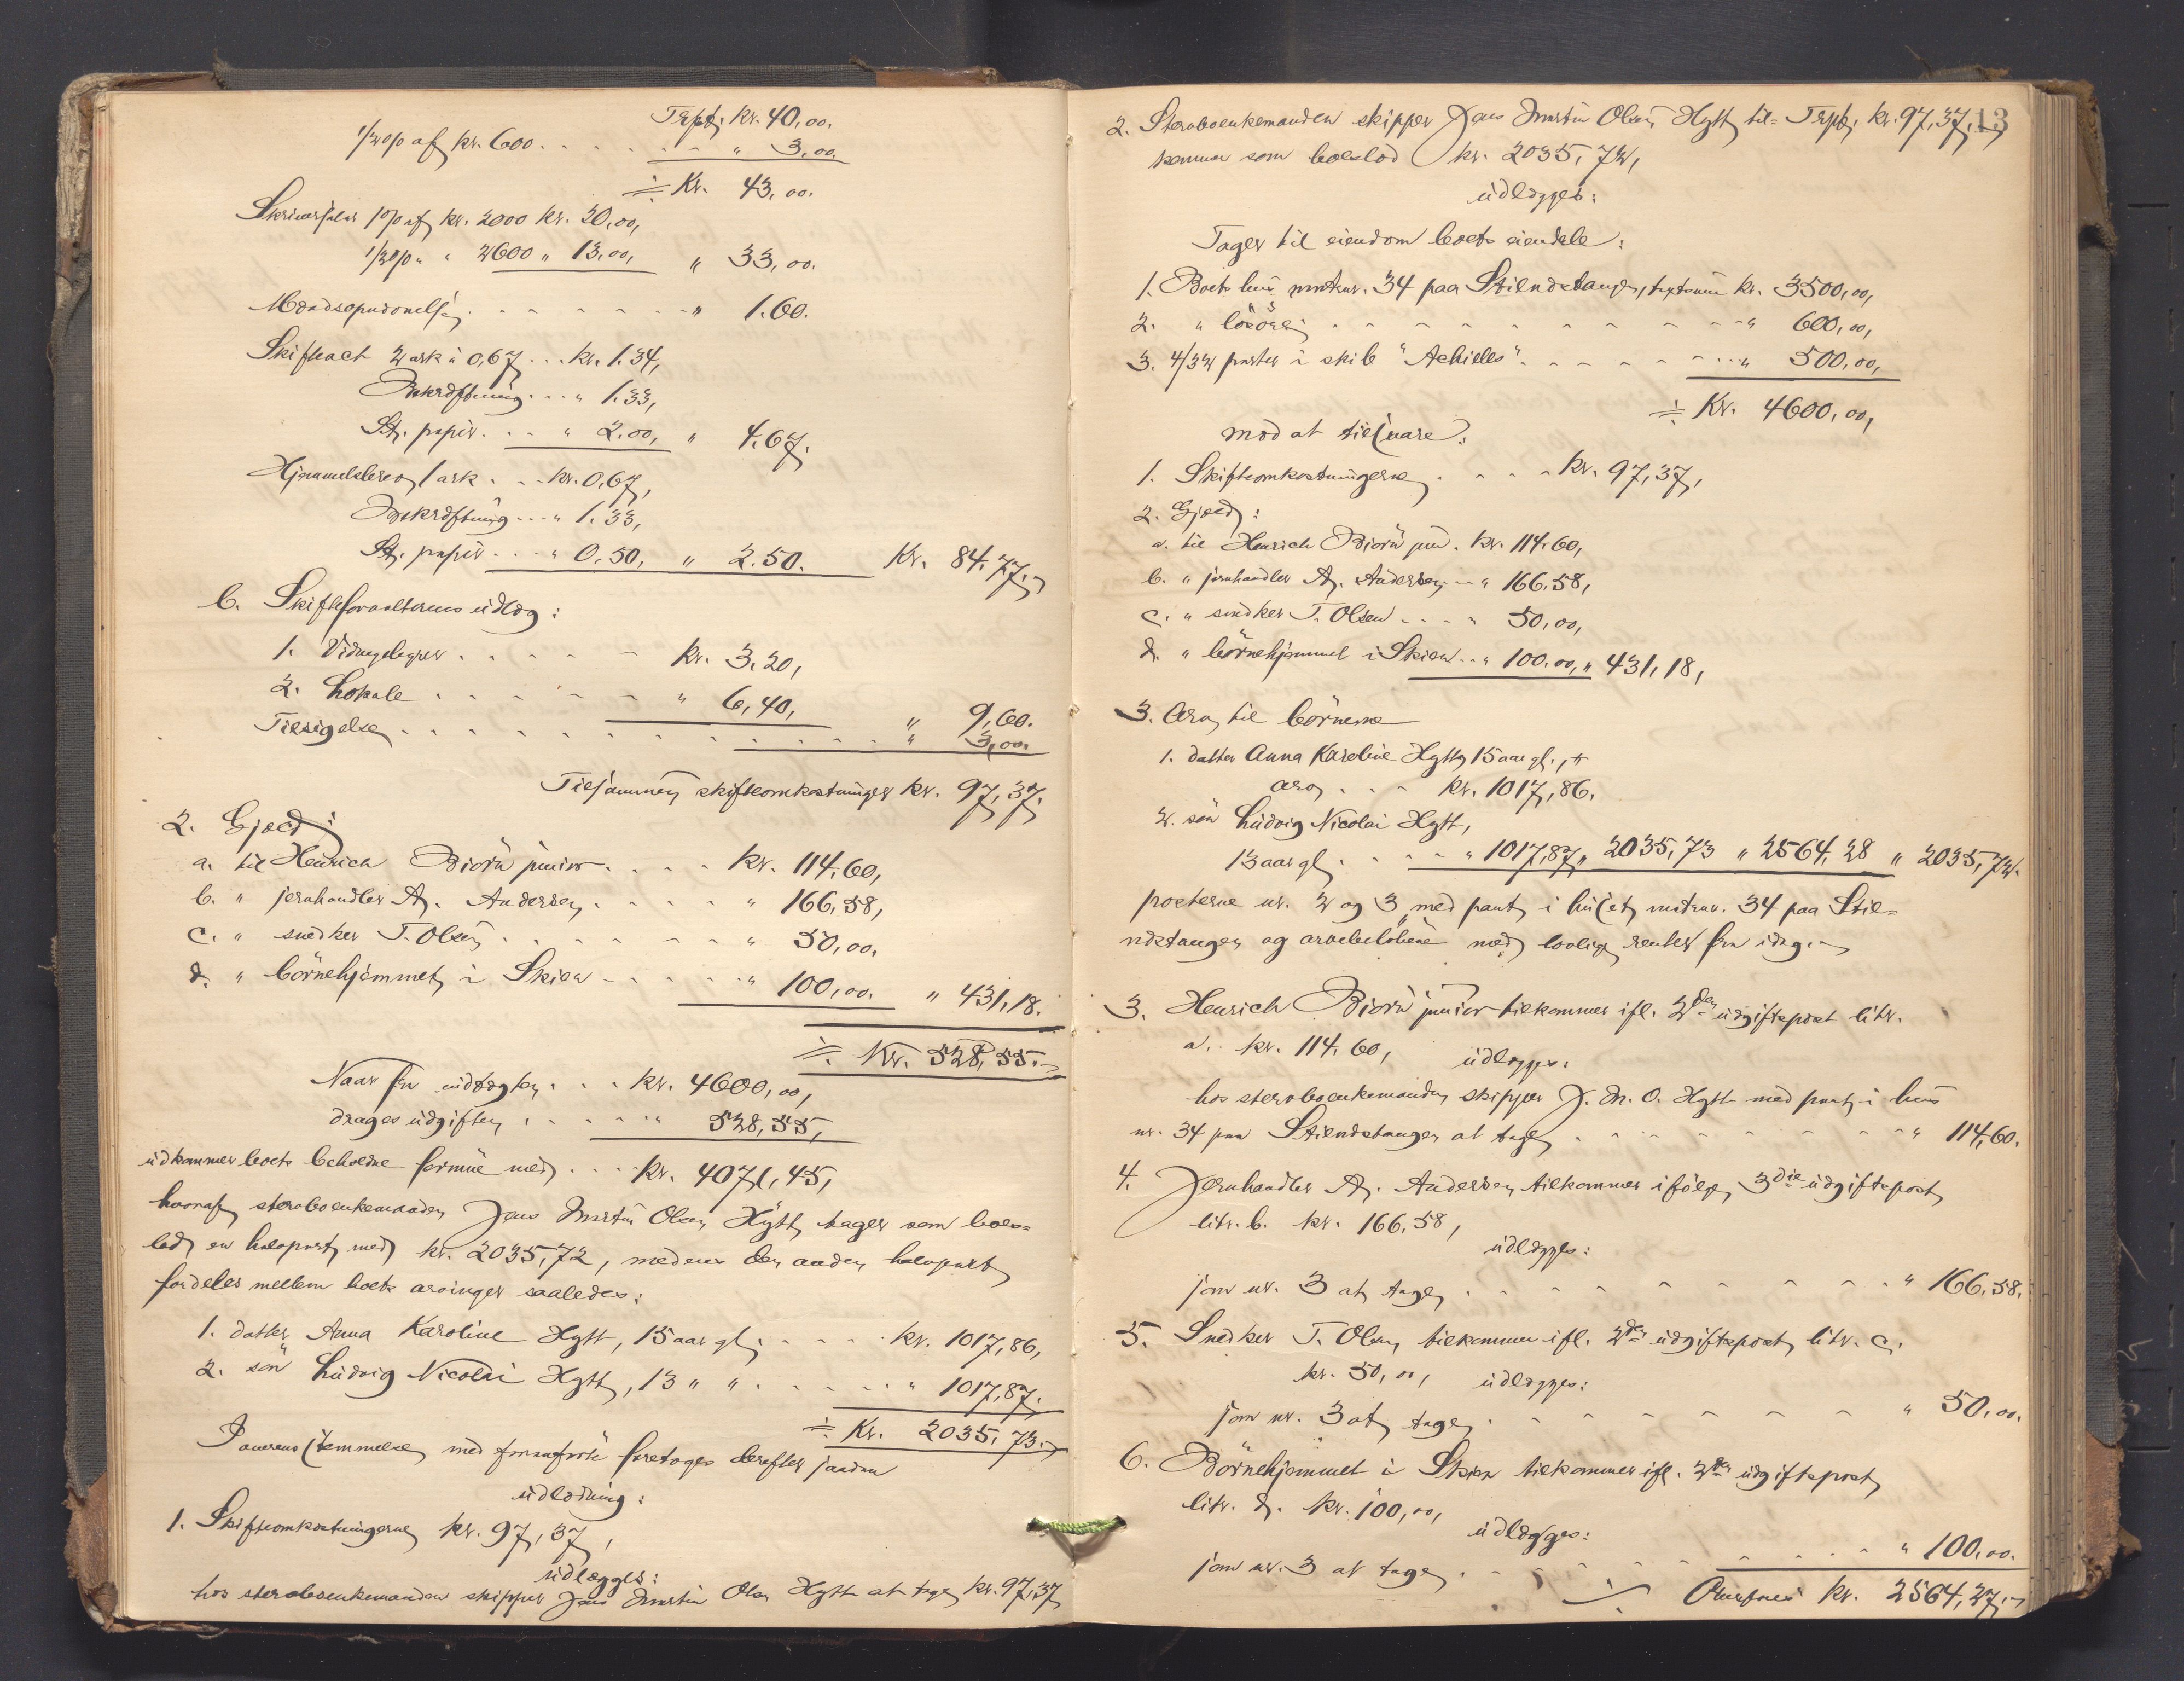 Trpt. kr. 40,00.
1/2 0/0 af kr. 600 . . . . . . " 3,00.
÷ Kr. 43,00.
Skriversalær 1 0/0 af kr. 2000 kr. 20,00,
1/2 0/0 " " 2600 " 13,00, " 33,00.
. . . . . . " 1.60.
Skifteact 2 ark à 0,67 . . . kr. 1.34,
Bekræftning . . . " 1.33,
St. papir . . . " 2.00, " 4.67.
Hjemmelsbrev 1 ark . . . kr. 0,67,
Bekræftning . . . " 1.33,
St. papir . . . " 0.50, " 2.50. Kr. 84.77.
b. Skifteforvalterens udlæg:
1. Vidnegebyrer . . . . . kr. 3.20,
2. Lokale . . . . . " 6,40, " 9,60.
Tilsigelse . . . . . . . . . . " 3,00.
Tilsammen skifteomkostninger kr. 97,37.
2. Gjæld:
a. til Henrich Biörn junior . . . . kr. 114,60,
b. " jernhandler A. Andersen . . . . " 166,58,
c. " snedker T. Olsen . . . . . " 50,00,
d. " börnehjemmet i Skien . . . . . " 100,00. " 431,18.
÷ Kr. 528,55.
Naar fra indtægten . . . kr. 4600,00,
drages udgiften . . . . . " 528,55,
udkommer boets beholdne formue med . . . kr. 4071,45,
hvoraf stervboenkemanden Jens Martin Olsen Hytt tager som boes-
lod en halvpart med kr. 2035,72, medens den anden halvpart
fordeles mellem boets arvinger saaledes:
1. datter Anna Karoline Hytt, 15 aar gl. . . . . kr. 1017,86,
2. sön Ludvig Nicolai Hytt, 13 " " . . . . . " 1017,87.
÷ Kr. 2035,73.
I overensstemmelse med foranförte foretoges derefter saadan
udlodning:
1. Skifteomkostningerne kr. 97,37,
udlægges:
hos stervboenkemanden skipper Jens Martin Olsen Hytt at tage kr. 97,37
13
2. Stervboenkemanden skipper Jens Martin Olsen Hytt til- Trpt. kr. 97,37.
kommer som boeslod kr. 2035,72,
udlægges:
Tager til eiendom boets eiendele:
1. Boets hus matrnr. 34 paa Stilndstangen, taxtsum kr. 3500,00,
2. " lösöre . . . . . . . . . . " 600,00,
3. 4/32 parter i skib "Achilles" . . . . . . . " 500,00,
÷ Kr. 4600,00,
mod at tilsvare:
1. Skifteomkostningerne . . . . kr. 97,37,
2. Gjæld:
a. til Henrich Biörn jun. kr. 114,60,
b. " jernhandler A. Andersen . . " 166,58,
c. " snedker T. Olsen . . . . " 50,00,
d. " börnehjemmet i Skien . . " 100,00, " 431,18,
3. Arv til börnene
1. datter Anna Karoline Hytt 15 aar gl.,
arv . . . kr. 1017,86.
2. sön Ludvig Nicolai Hytt,
13 aar gl . . . . . " 1017,87, " 2035,73 " 2564,28 " 2035,72.
posterne nr. 2 og 3 med pant i huset matrnr. 34 paa Stil-
ndstangen og arvebelöbene med lovlige renter fra idag.
3. Henrich Biörn junior tilkommer ifl. 2den udgiftspost litr.
a. kr. 114,60, udlægges:
hos stervboenkemanden skipper J. M. O. Hytt med pant i hus
nr. 34 paa Stilndstangen at tage . . . . . . . . " 114,60.
4. Jernhandler A. Andersen tilkommer ifölge 3die udgiftspost
litr. b. kr. 166,58,
udlægges:
som nr. 3 at tage . . . . . . . . . " 166,58.
5. Snedker T. Olsen tilkommer ifl. 2den udgiftspost litr. c.
kr. 50,00, udlægges:
som nr. 3 at tage . . . . . . . . " 50,00.
6. Börnehjemmet i Skien tilkommer ifl. 2den udgiftspost
litr. d. kr. 100,00,
udlægges:
som nr. 3 at tage . . . . . . . . . " 100,00.
÷ Overföres kr. 2564,27.